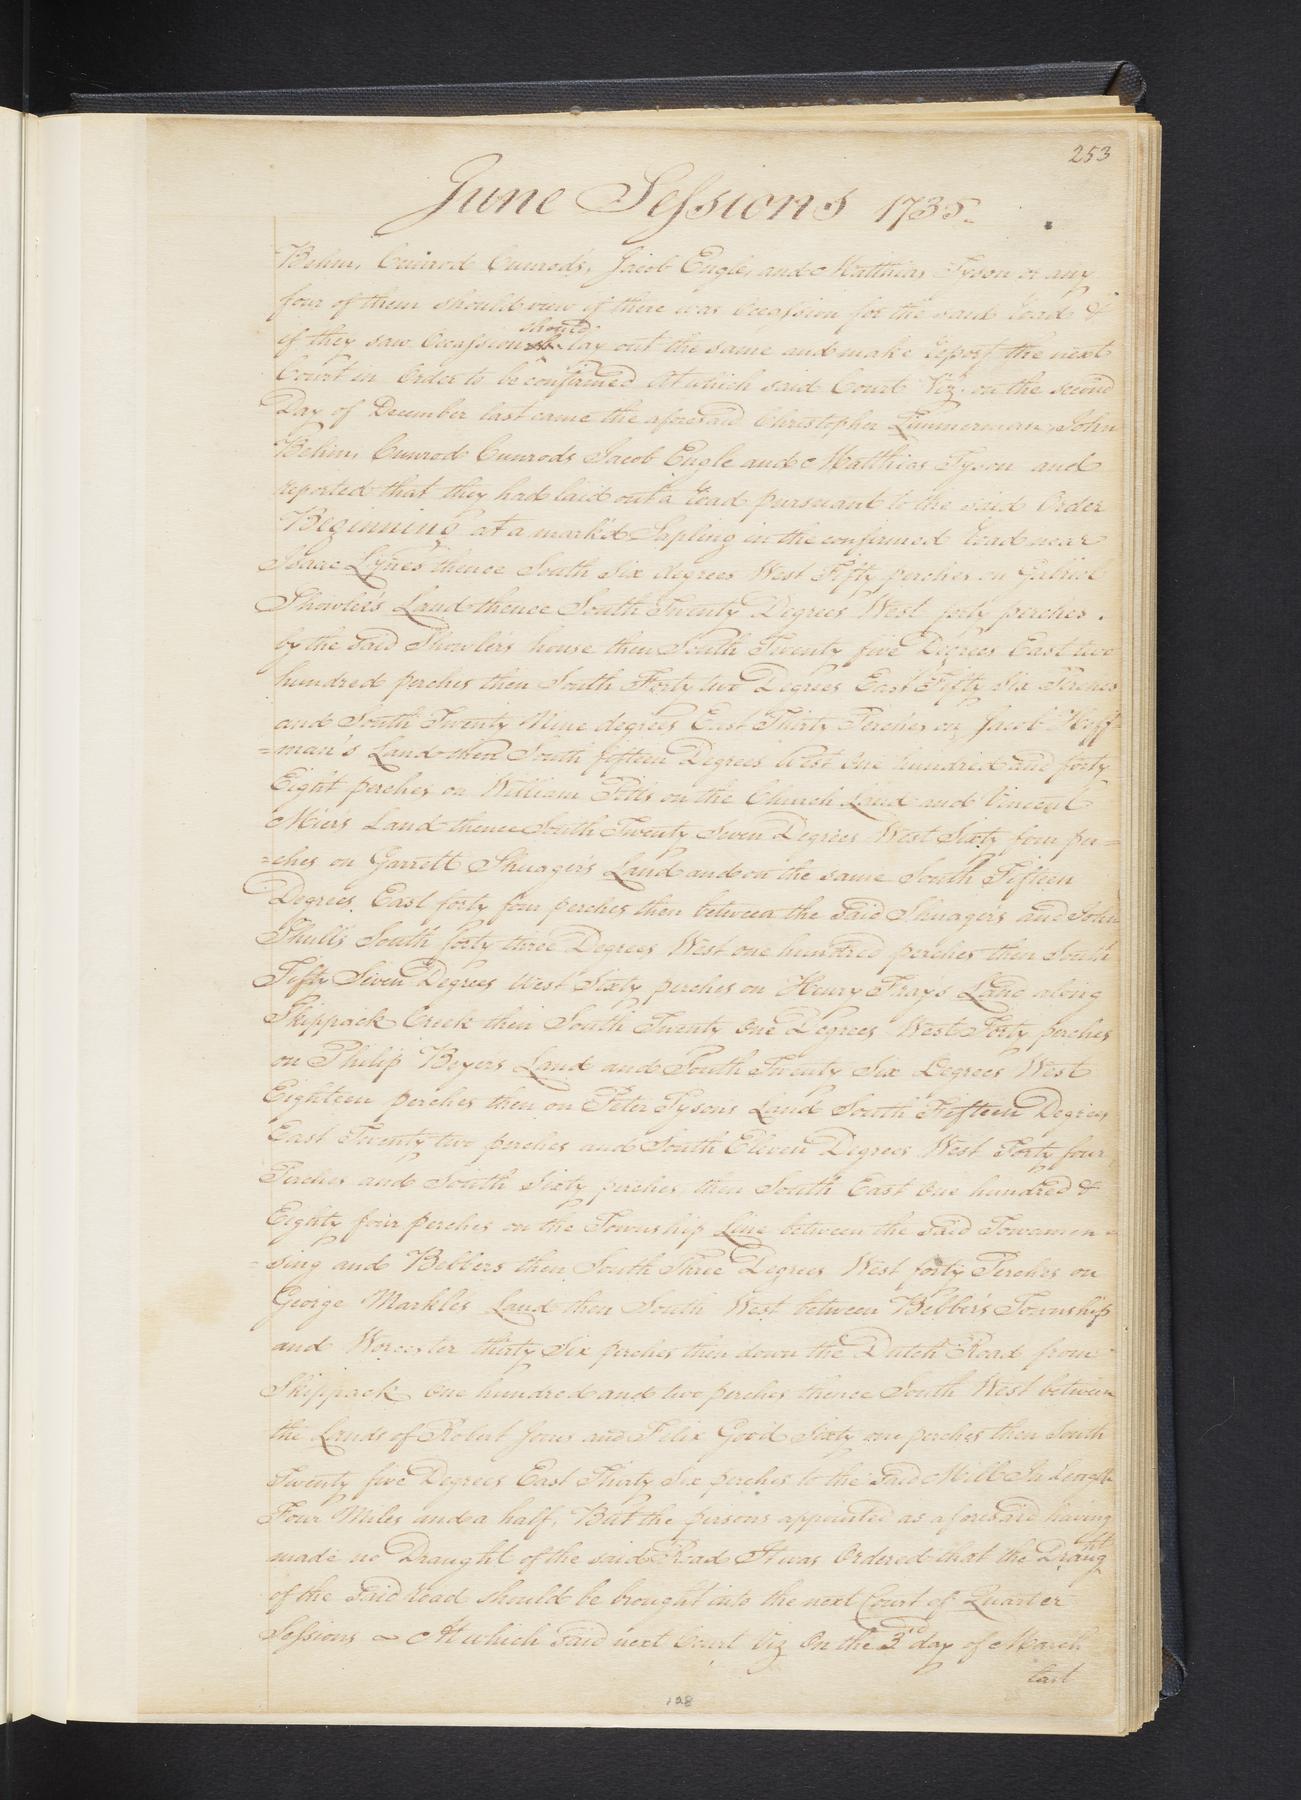 253
June Sessions 1735.
Behm, Cunrod Cunrods, Jacob Engle, and Matthias Tyson or any
four of them should view if there was Occassion for the said road &
if they saw Occassion should lay out the same and make report the next
Court in Order to be confirmed At which said Court Viz. on the second
Day of December last came the aforesaid Christopher Zimmerman, John
Behm, Cunrod Cunrods Jacob Engle and Matthias Tyson and
reported that they had laid out a road pursuant to the said Order
Beginning at a mark'd Sapling in the confirmed road near
Isaac Lynes thence South Six degrees West Fifty perches on Gabriel
Showler's Land thence South Twenty Degrees West forty perches.
by the said Showlers house then South Twenty five Degrees East two
hundred perches then South Forty two Degrees East Fifty Six Perches
and South Twenty Nine degrees East Thirty Perches on Jacob Huff=
=man's Land then South fifteen Degrees West One hundred and forty
Eight perches on William Pitts on the Church Land and Vincent
Miers Land thence South Twenty Seven Degrees West Sixty four per=
=ches on Garrett Shuager's Land and on the same South Fifteen
Degrees East forty four perches then between the said Shuagers and John
Shulls South forty three Degrees West one hundred perches then South
Fifty Seven Degrees West Sixty perches on Henry Frays Land along
Skippack Creek then South Twenty One Degrees West Forty perches
on Philip Boyers Land and South Twenty Six Degrees West
Eighteen perches then on Peter Tysons Land South Fifteen Degrees
East Twenty two perches and South Eleven Degrees West Forty four
Perches and South Sixty perches then South East One hundred &
Eighty four perches on the Township Line between the said Towamen=
=sing and Bebbers then South Three Degrees West forty Perches on
George Markles Land then South West between Bebber's Township
and Worcester thirty Six perches then down the Dutch Road from
Skippack One hundred and two perches thence South West between
the Lands of Robert Jones and Felix Good Sixty one perches then South
Twenty five Degrees East Thirty Six perches to the said Mill In Length
Four Miles and a half. But the persons appointed as aforesaid having
made no Draught of the said Road It was Ordered that the Draught
of the said road should be brought into the next Court of Quarter
Sessions At which said next Court Viz On the 3rd day of March
last
128